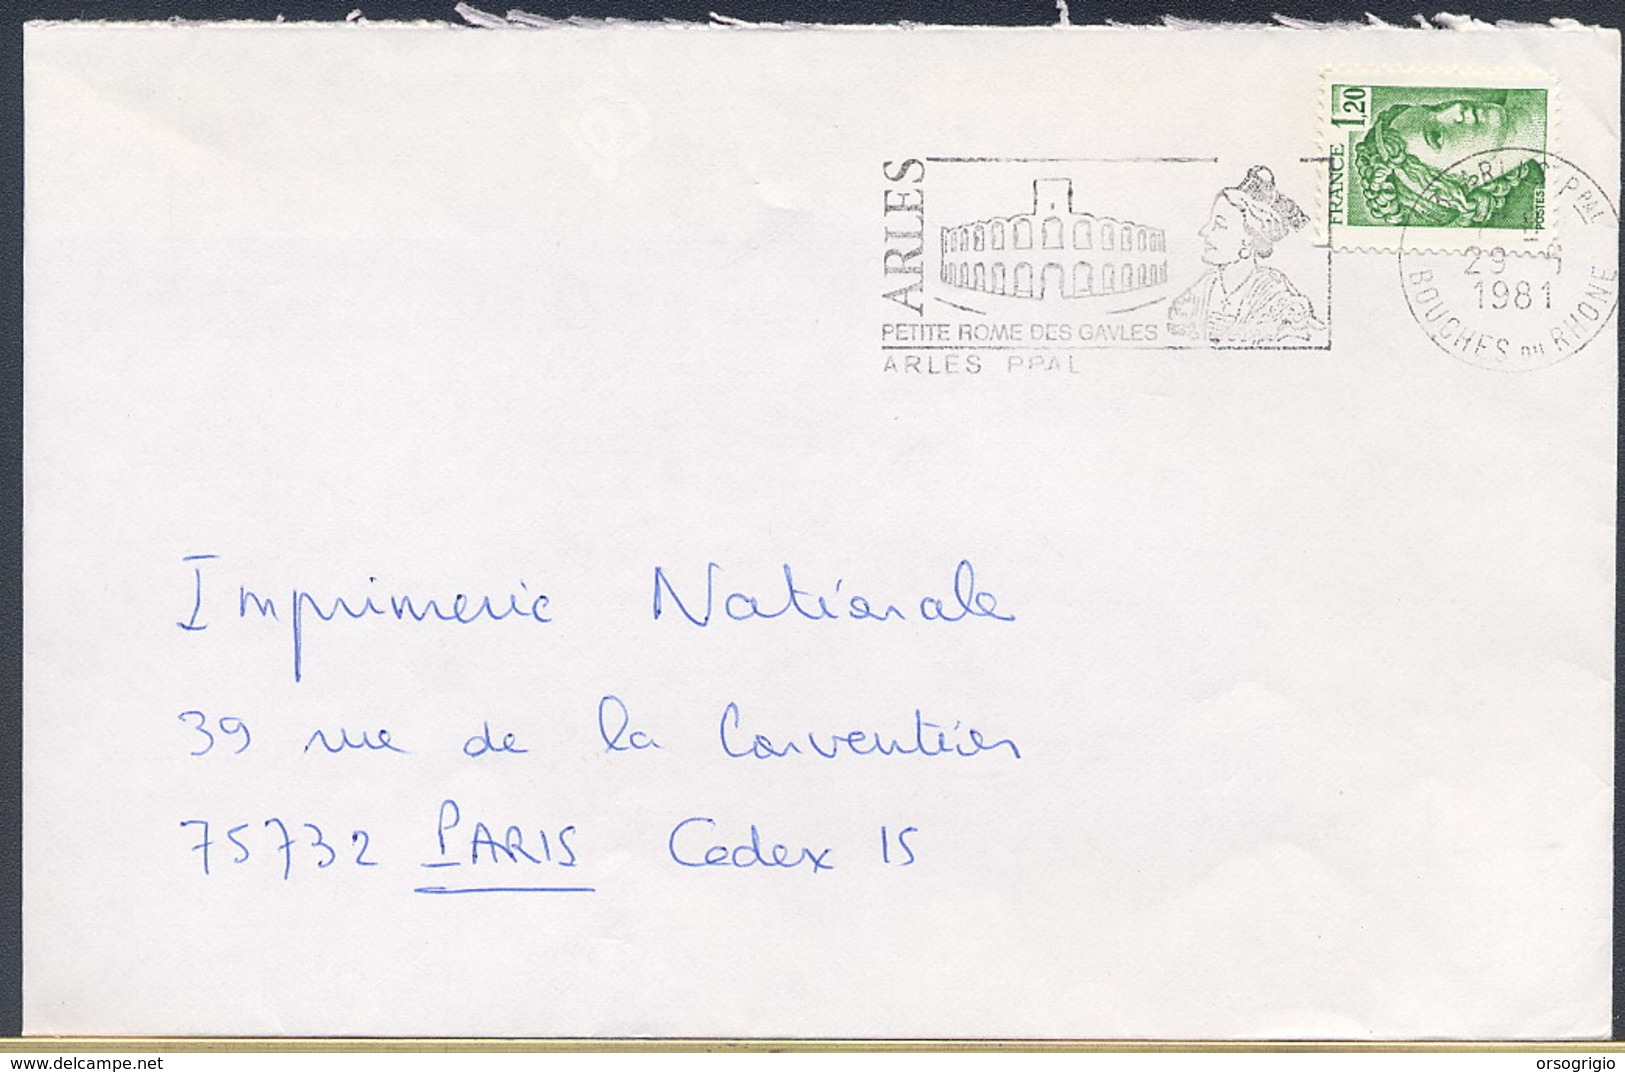 FRANCE 1,20
POSTES
ARLES
PETITE ROME DES GAVLES
ARLES PPAL
ARLES PPAL
29
1981
BOUCHES DU RHONE
Imprimerie Nationale
39 rue de la Convention
75732 PARIS Cedex 15
www.delcampe.net
orsogrigio